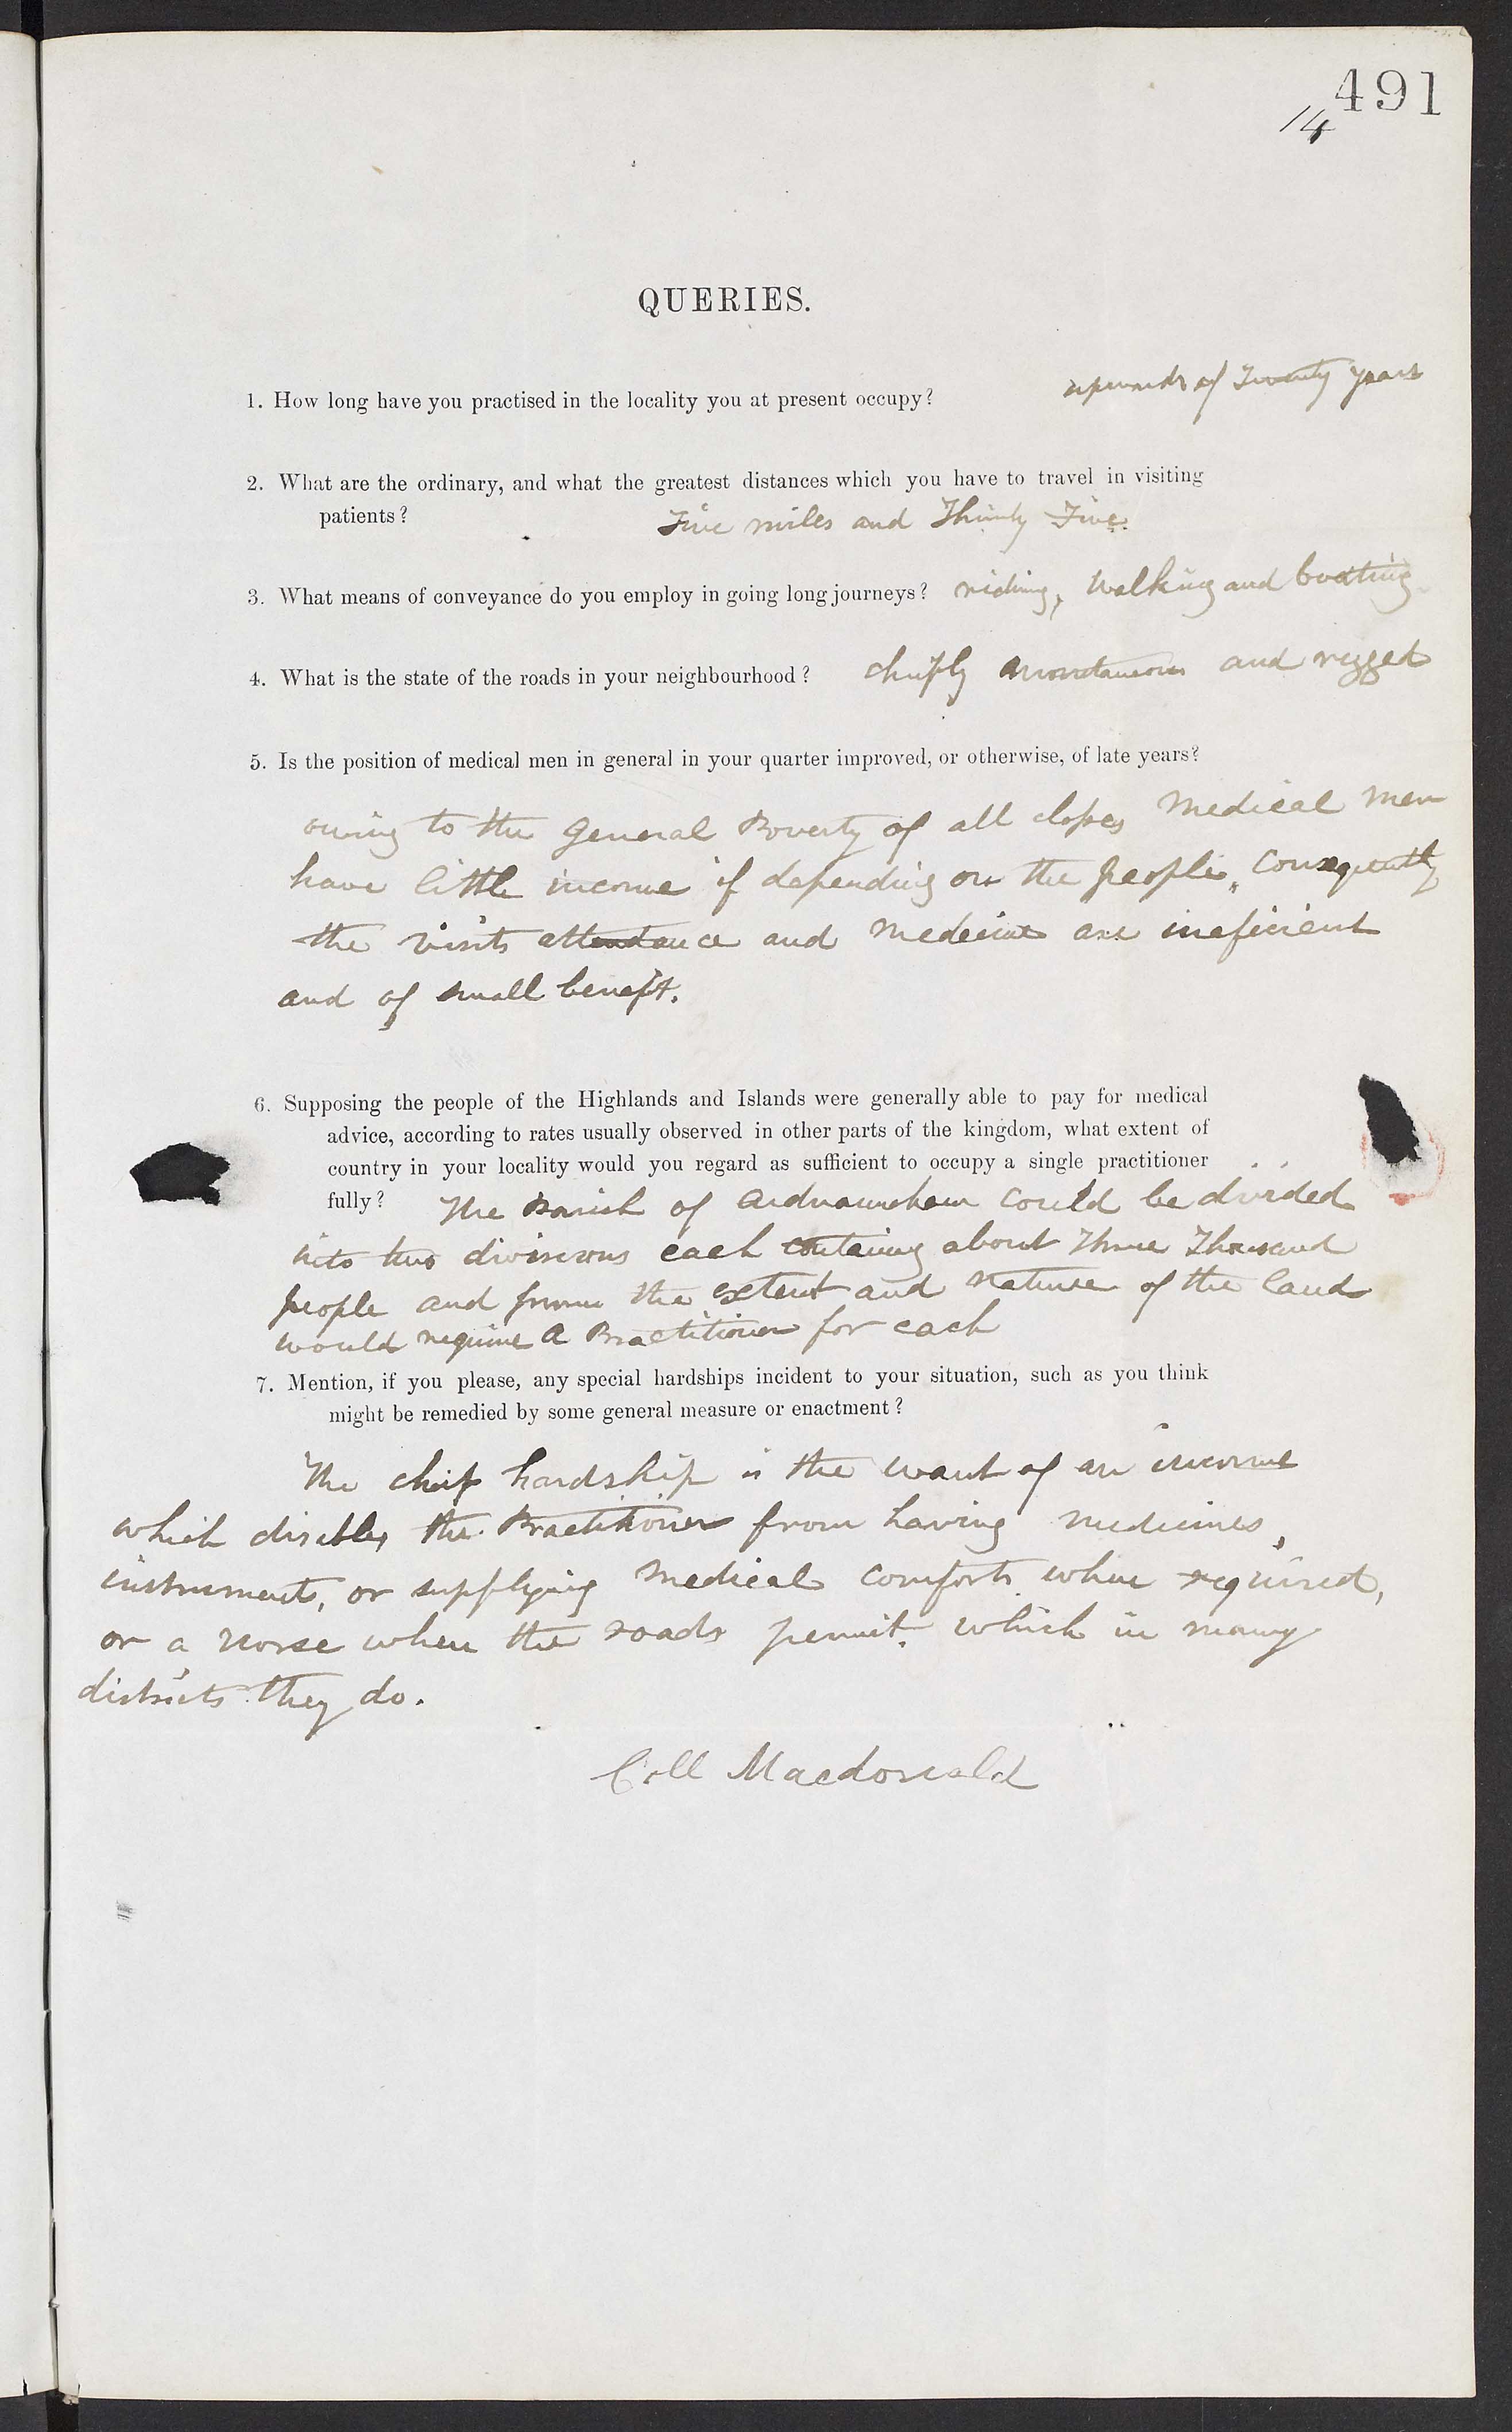 491
14
QUERIES.
upwards of Twenty years
1. How long have you practised in the locality you at present occupy?
2. What are the ordinary, and what the greatest distances which you have to travel in visiting
patients?
Five miles and Thirty Five.
3. What means of conveyance do you employ in going long journeys? riding, Walking and boating
4. What is the state of the roads in your neighbourhood? chiefly mountaneous and rugged
5. Is the position of medical men in general in your quarter improved, or otherwise, of late years?
owing to the general Poverty of all classes Medical Men
have little income if depending on the people, Consequently
the visits attendance and Medecine are ineficient
and of small benefit.
6. Supposing the people of the Highlands and Islands were generally able to pay for medical
advice, according to rates usually observed in other parts of the kingdom, what extent of
country in your locality would you regard as sufficient to occupy a single practitioner
fully? The Parish of Ardnamurchan Could be divided
into two divisions each containing about Three Thousand
people and from the extent and nature of the land
would require A Practitioner for each
7. Mention, if you please, any special hardships incident to your situation, such as you think
might be remedied by some general measure or enactment?
The chief hardship is the want of an income
which disables the Practitioner from having medicines,
instruments, or supplying Medical Comforts when required,
or a horse when the roads permit, which in many
districts they do.
Coll Macdonald